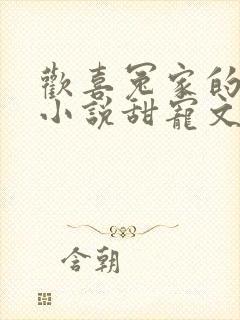 歡喜冤家的
小說甜寵文
含朝